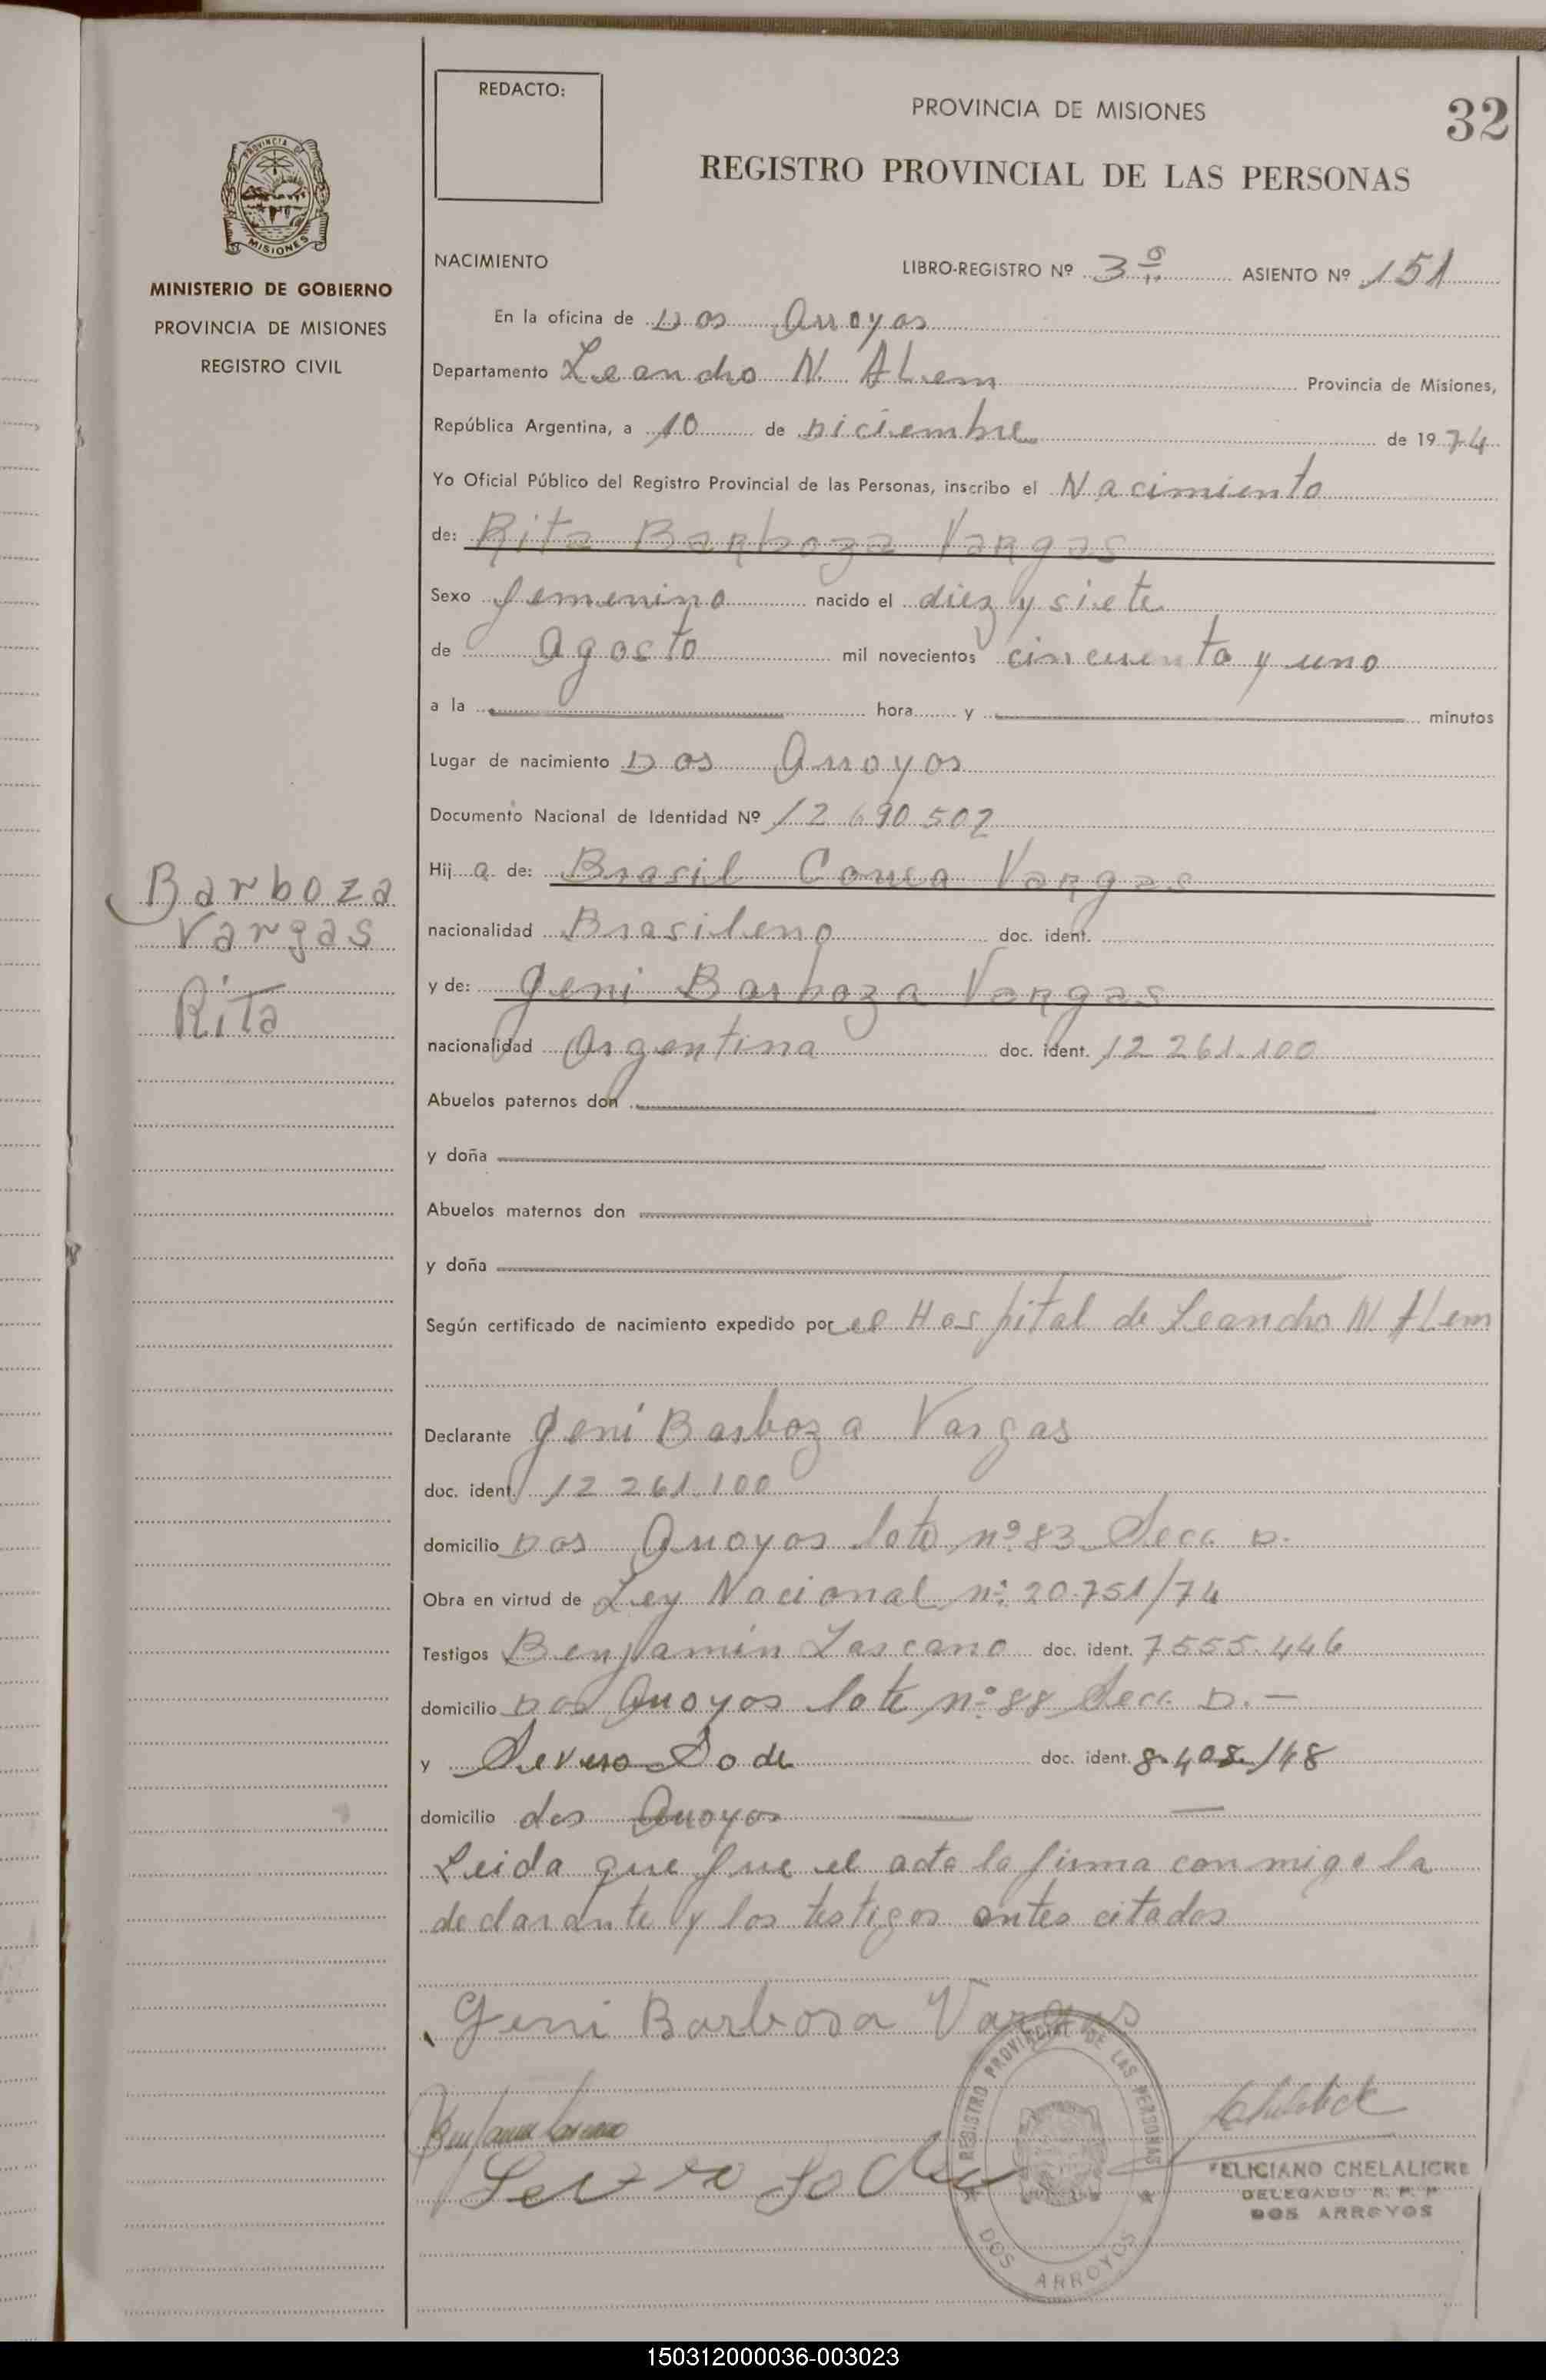 REDACTO:
PROVINCIA DE MISIONES
32
REGISTRO PROVINCIAL DE LAS PERSONAS
PROVINCIA DE
MISIONES
MINISTERIO DE GOBIERNO
PROVINCIA DE MISIONES
REGISTRO CIVIL
NACIMIENTO LIBRO-REGISTRO Nº 3º ASIENTO Nº 151
En la oficina de Dos Arroyos
Departamento Leandro N. ALem Provincia de Misiones,
República Argentina, a 10 de Diciembre de 1974
Yo Oficial Público del Registro Provincial de las Personas, inscribo el Nacimiento
de: Rita Barboza Vargas
Sexo femenino nacido el diez y siete
de Agosto mil novecientos cincuenta y uno
a la hora y minutos
Lugar de nacimiento Dos Arroyos
Documento Nacional de Identidad Nº 12 690 502
Hija de: Brasil Correa Vargas
Barboza
Vargas
Rita
nacionalidad Brasileno doc. ident.
y de: Geni Barboza Vargas
nacionalidad Argentina doc. ident. 12 261.100
Abuelos paternos don
y doña
Abuelos maternos don
y doña
Según certificado de nacimiento expedido por el Hospital de Leandro N. ALem
Declarante Geni Barboza Vargas
doc. ident. 12 261.100
domicilio Dos Arroyos lote nº 83 Secc. D.
Obra en virtud de Ley Nacional nº 20.751/74
Testigos Benjamin Lascano doc. ident. 7555.446
domicilio Dos Arroyos lote nº 88 Secc. D.-
y Severo Sode doc. ident. 8.408.148
domicilio dos Arroyos
Leida que fue el acta la firma conmigo la
declarante y los testigos antes citados
Geni Barbosa Vargas
REGISTRO PROVINCIAL DE LAS PERSONAS
DOS ARROYOS
FELICIANO CHELALICHE
DELEGADO R. P. P.
DOS ARROYOS
150312000036-003023